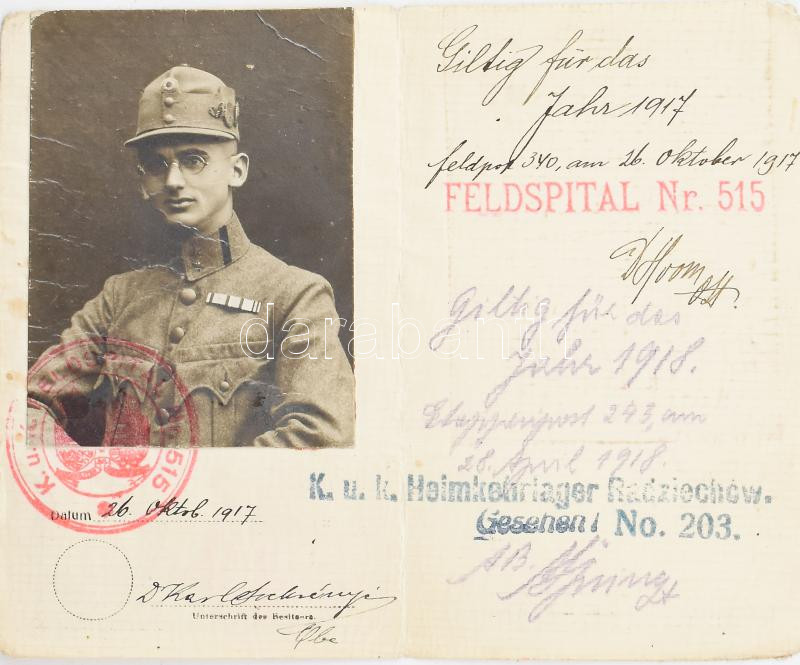 K. u. k. 515
Datum 26. Oktob. 1917
D Karl
Unterschrift des Besitzers.
Giltig für das
Jahr 1917
feldpost 340, am 26. Oktober 1917
FELDSPITAL Nr. 515
Giltig für das
Jahr 1918.
Etappenpost 243, am
28. April 1918.
K. u. k. Heimkehrlager Radziechów.
Gesehen! No. 203.
darabanth